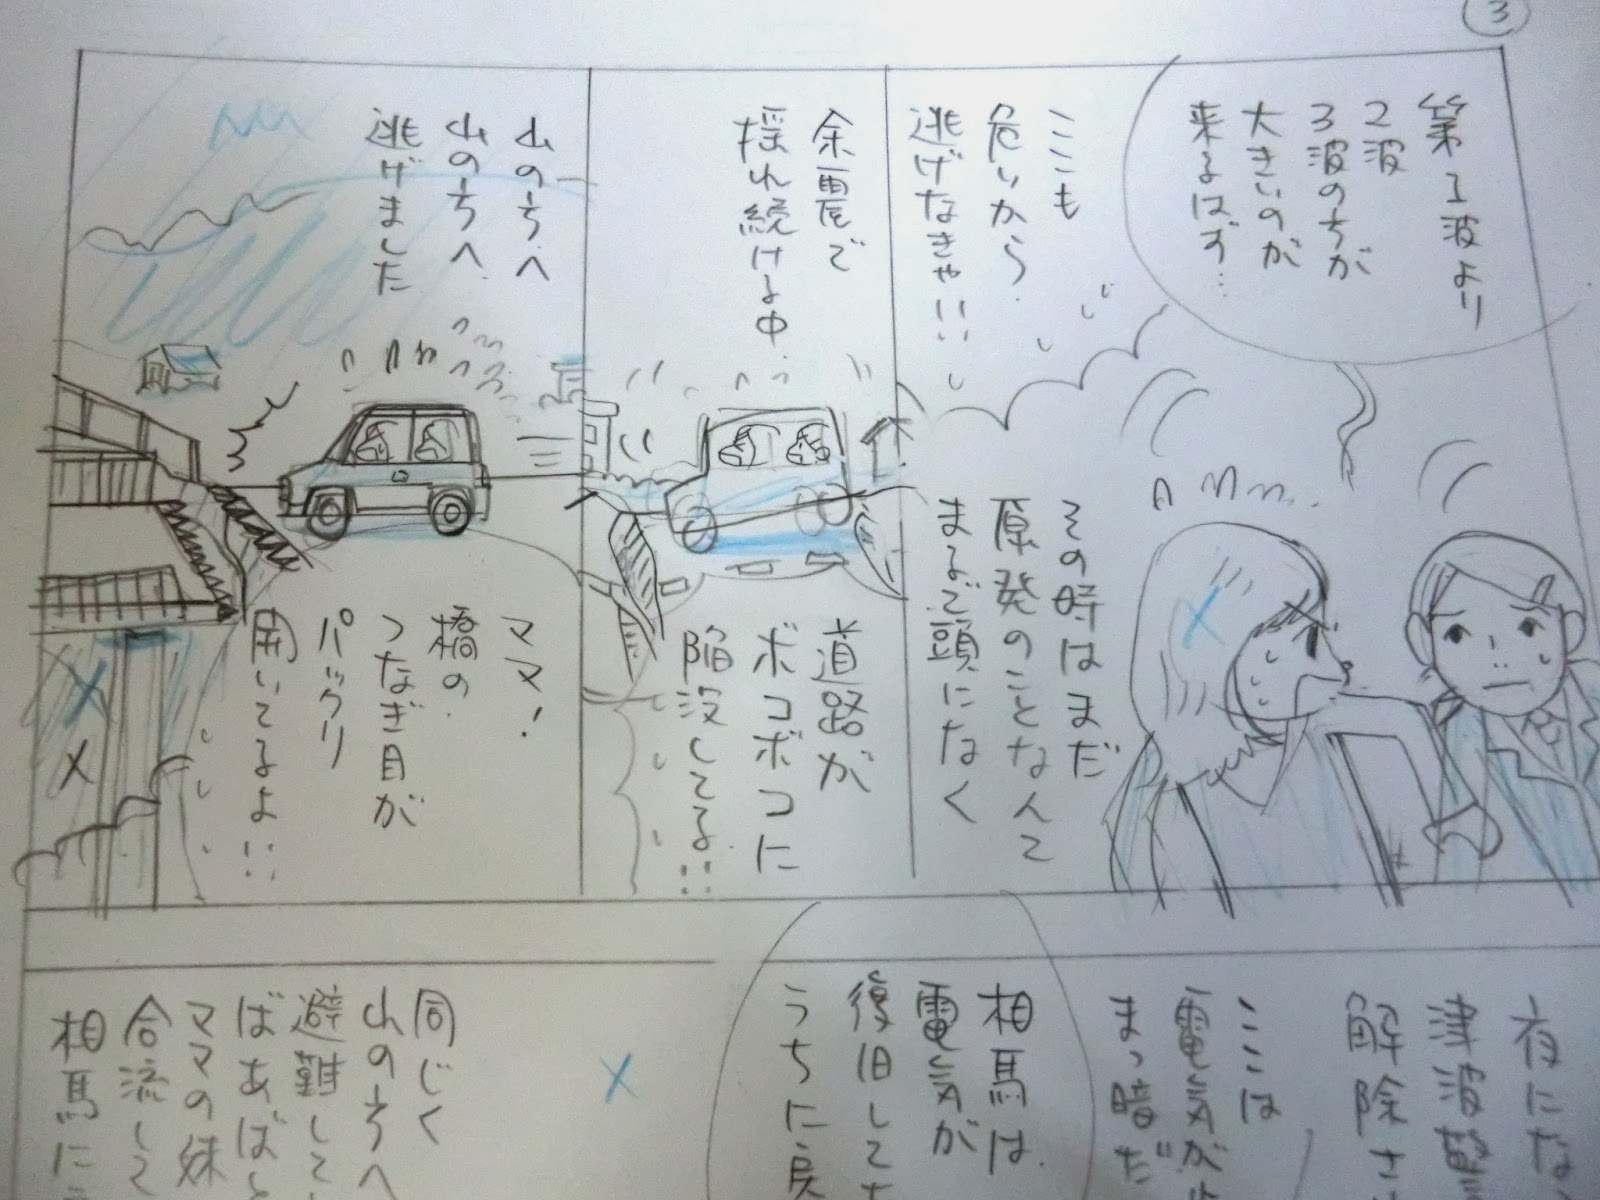 3
第1波より
2波
3波のちが
大きいのが
来るはず…
ここも
危いから
逃げなきゃ!!
その時はまだ
原発のことなんて
まるで頭になく
余震で
揺れ続ける中
道路が
ボコボコに
陥没してる!!
山のちへ
山のちへ
逃げました
ママ!
橋の
つなぎ目が
パックリ
開いてるよ!!
夜にな
津波警
解除さ
ここは
電気が
まっ暗だ
相馬は
電気が
復旧して
うちに戻
同じく
山のちへ
避難して
ばあばと
ママの妹
合流して
相馬に